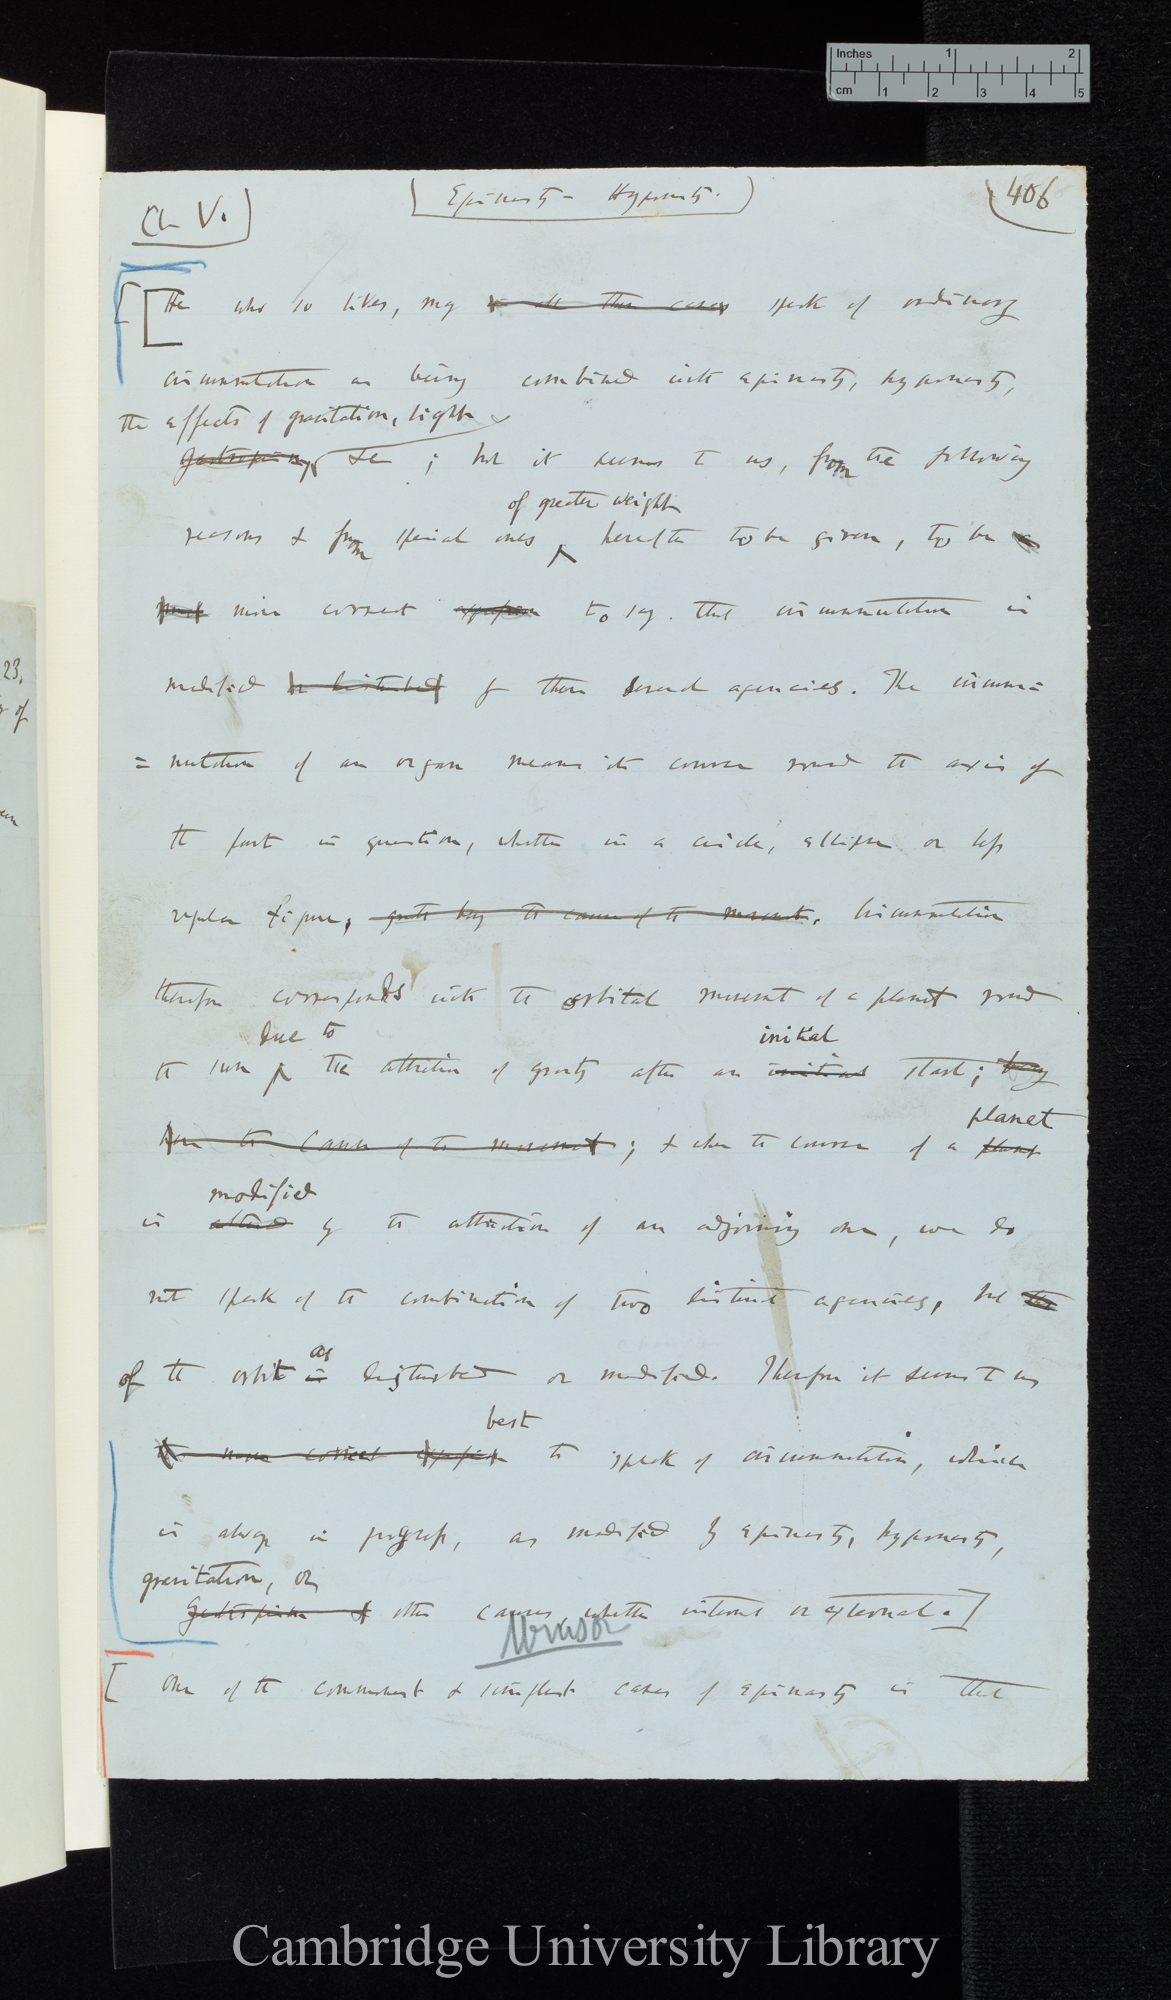 Inches 1 2
cm 1 2 3 4 5
Ch V.
Epinasty - Hyponasty.
406
He who so likes, may in all these cases speak of ordinary
circumnutation as being combined with epinasty, hyponasty,
the effects of gravitation, light
&c ; but it seems to us, from the following
of greater weight
reasons & from special ones hereafter to be given, to be a
more correct expression to say. that circumnutation is
modified be disturbed by these several agencies. The circum=
= nutation of an organ means its course round the axis of
the part in question, whether in a circle, ellipse or less
regular figure, the cause of the movement. Circumnutation
therefore corresponds with the orbital movement of a planet round
due to
initial
the sun the attraction of gravity after an initial start;
the cause of the movement ; & when the course of a plant
planet
modified
is altered by the attraction of an adjoining one, we do
not speak of the combination of two distinct agencies, but the
as
of the orbit is disturbed or modified. Therefore it seems to us
best
more correct expression to speak of circumnutation, which
is always in progress, as modified by epinasty, hyponasty,
gravitation, or
Geotropism & other causes, whether internal or external.
One of the commonest & simplest cases of epinasty is that
23.
of
Cambridge University Library